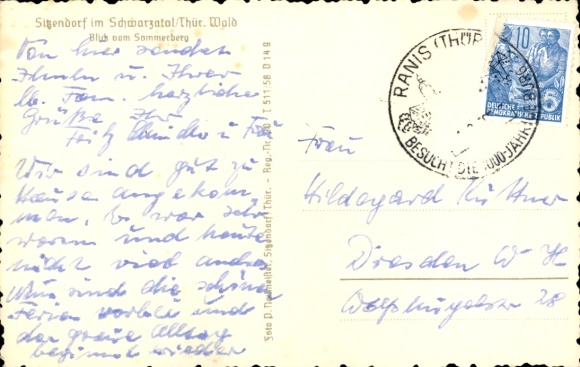 Sitzendorf im Schwarzatal/Thür. Wald
Blick vom Sommerberg
Von hier sendet
Ihnen u. Ihrer
lb. Fam. herzliche
Grüße Ihr
Fritz u. Frau
Wir sind gut zu
Hause angekom
men, Es war sehr
warm und heute
nicht viel anders
Nun sind die schönen
Ferien vorbei und
der graue Alltag
beginnt wieder
Foto Sitzendorf/Thür. - Reg.-Nr. T 511 58 D 149
RANIS (THÜR
BESUCHT DIE 1000-JAHR
BURG
10
5
DEUTSCHE
DEMOKRATISCHE REPUBLIK
Frau
Hildegard Küttner
Dresden W H
28